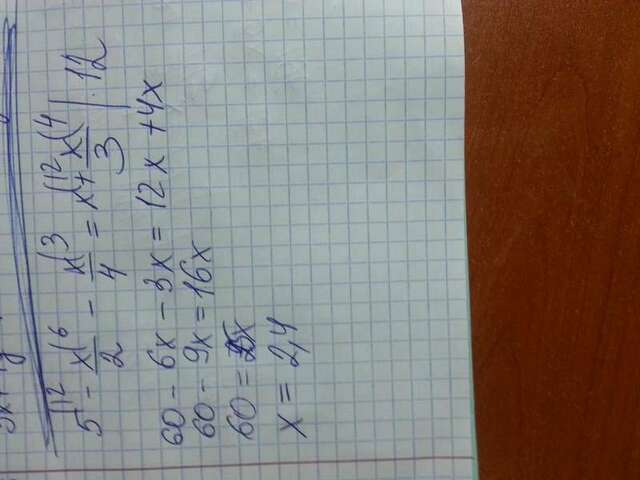 5|12 - x|6/2 - x|3/4 = x|12 + x|4/3 | · 12
60 - 6x - 3x = 12x + 4x
60 - 9x = 16x
60 = 25x
x = 2,4